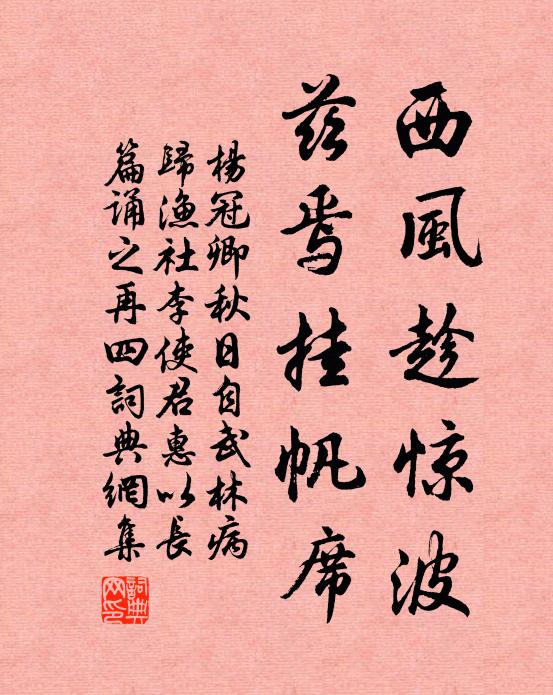 西風趁惊波
茲焉挂帆席
楊冠卿秋日自武林病
歸漁社李使君惠以長
篇誦之再四詞典網集
詞典
网印